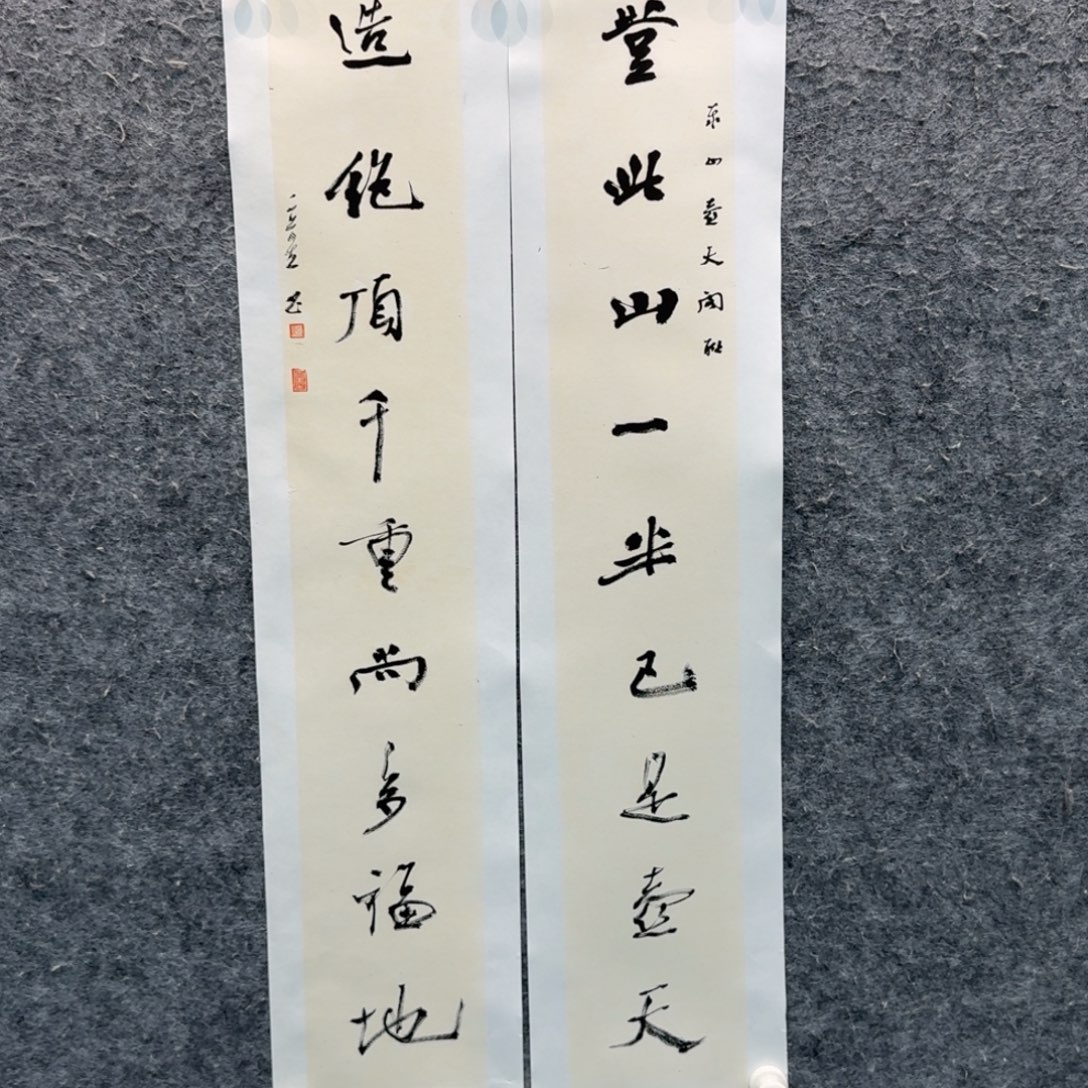 登此山一半已是壶天
泰山壶天阁联
造绝顶千重尚多福地